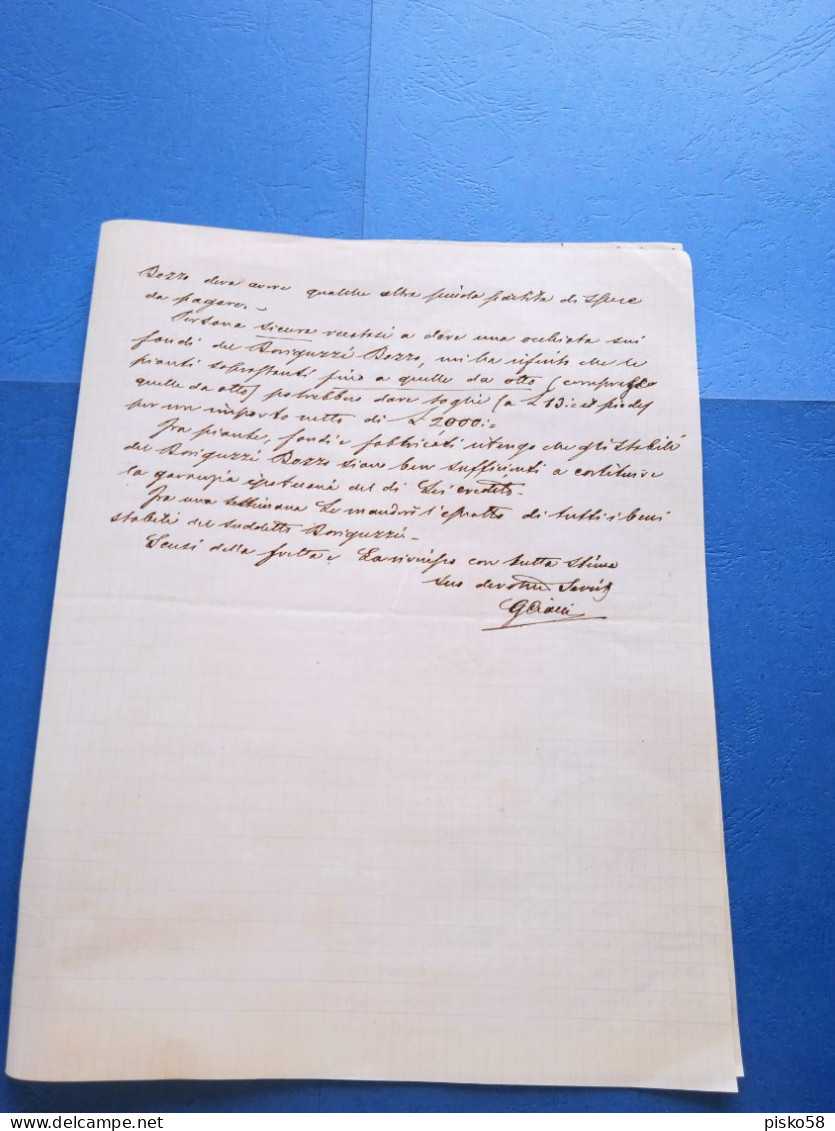 Bozzo deve avere qualche altra piccola partita di spese
da pagare.
Persona sicura recatasi a dare una occhiata sui
fondi del Bozzo, mi ha riferito che le
pianti soprastanti fino a quelle da otto (comprese
quelle da otto) potrebbero dare taglie (a £ 13
per un importo netto di £ 2000:=
Fra piante, fondi e fabbricati ritengo che gli stabili
del Bozzo siano ben sufficienti a costituire
la garanzia ipotecaria del di Lei credito.
Fra una settimana Le manderò l'estratto di tutti i beni
stabili del suddetto
Scusi della fretta e La riverisco con tutta stima
Suo devotmo Servit
delcampe.net
pisko58